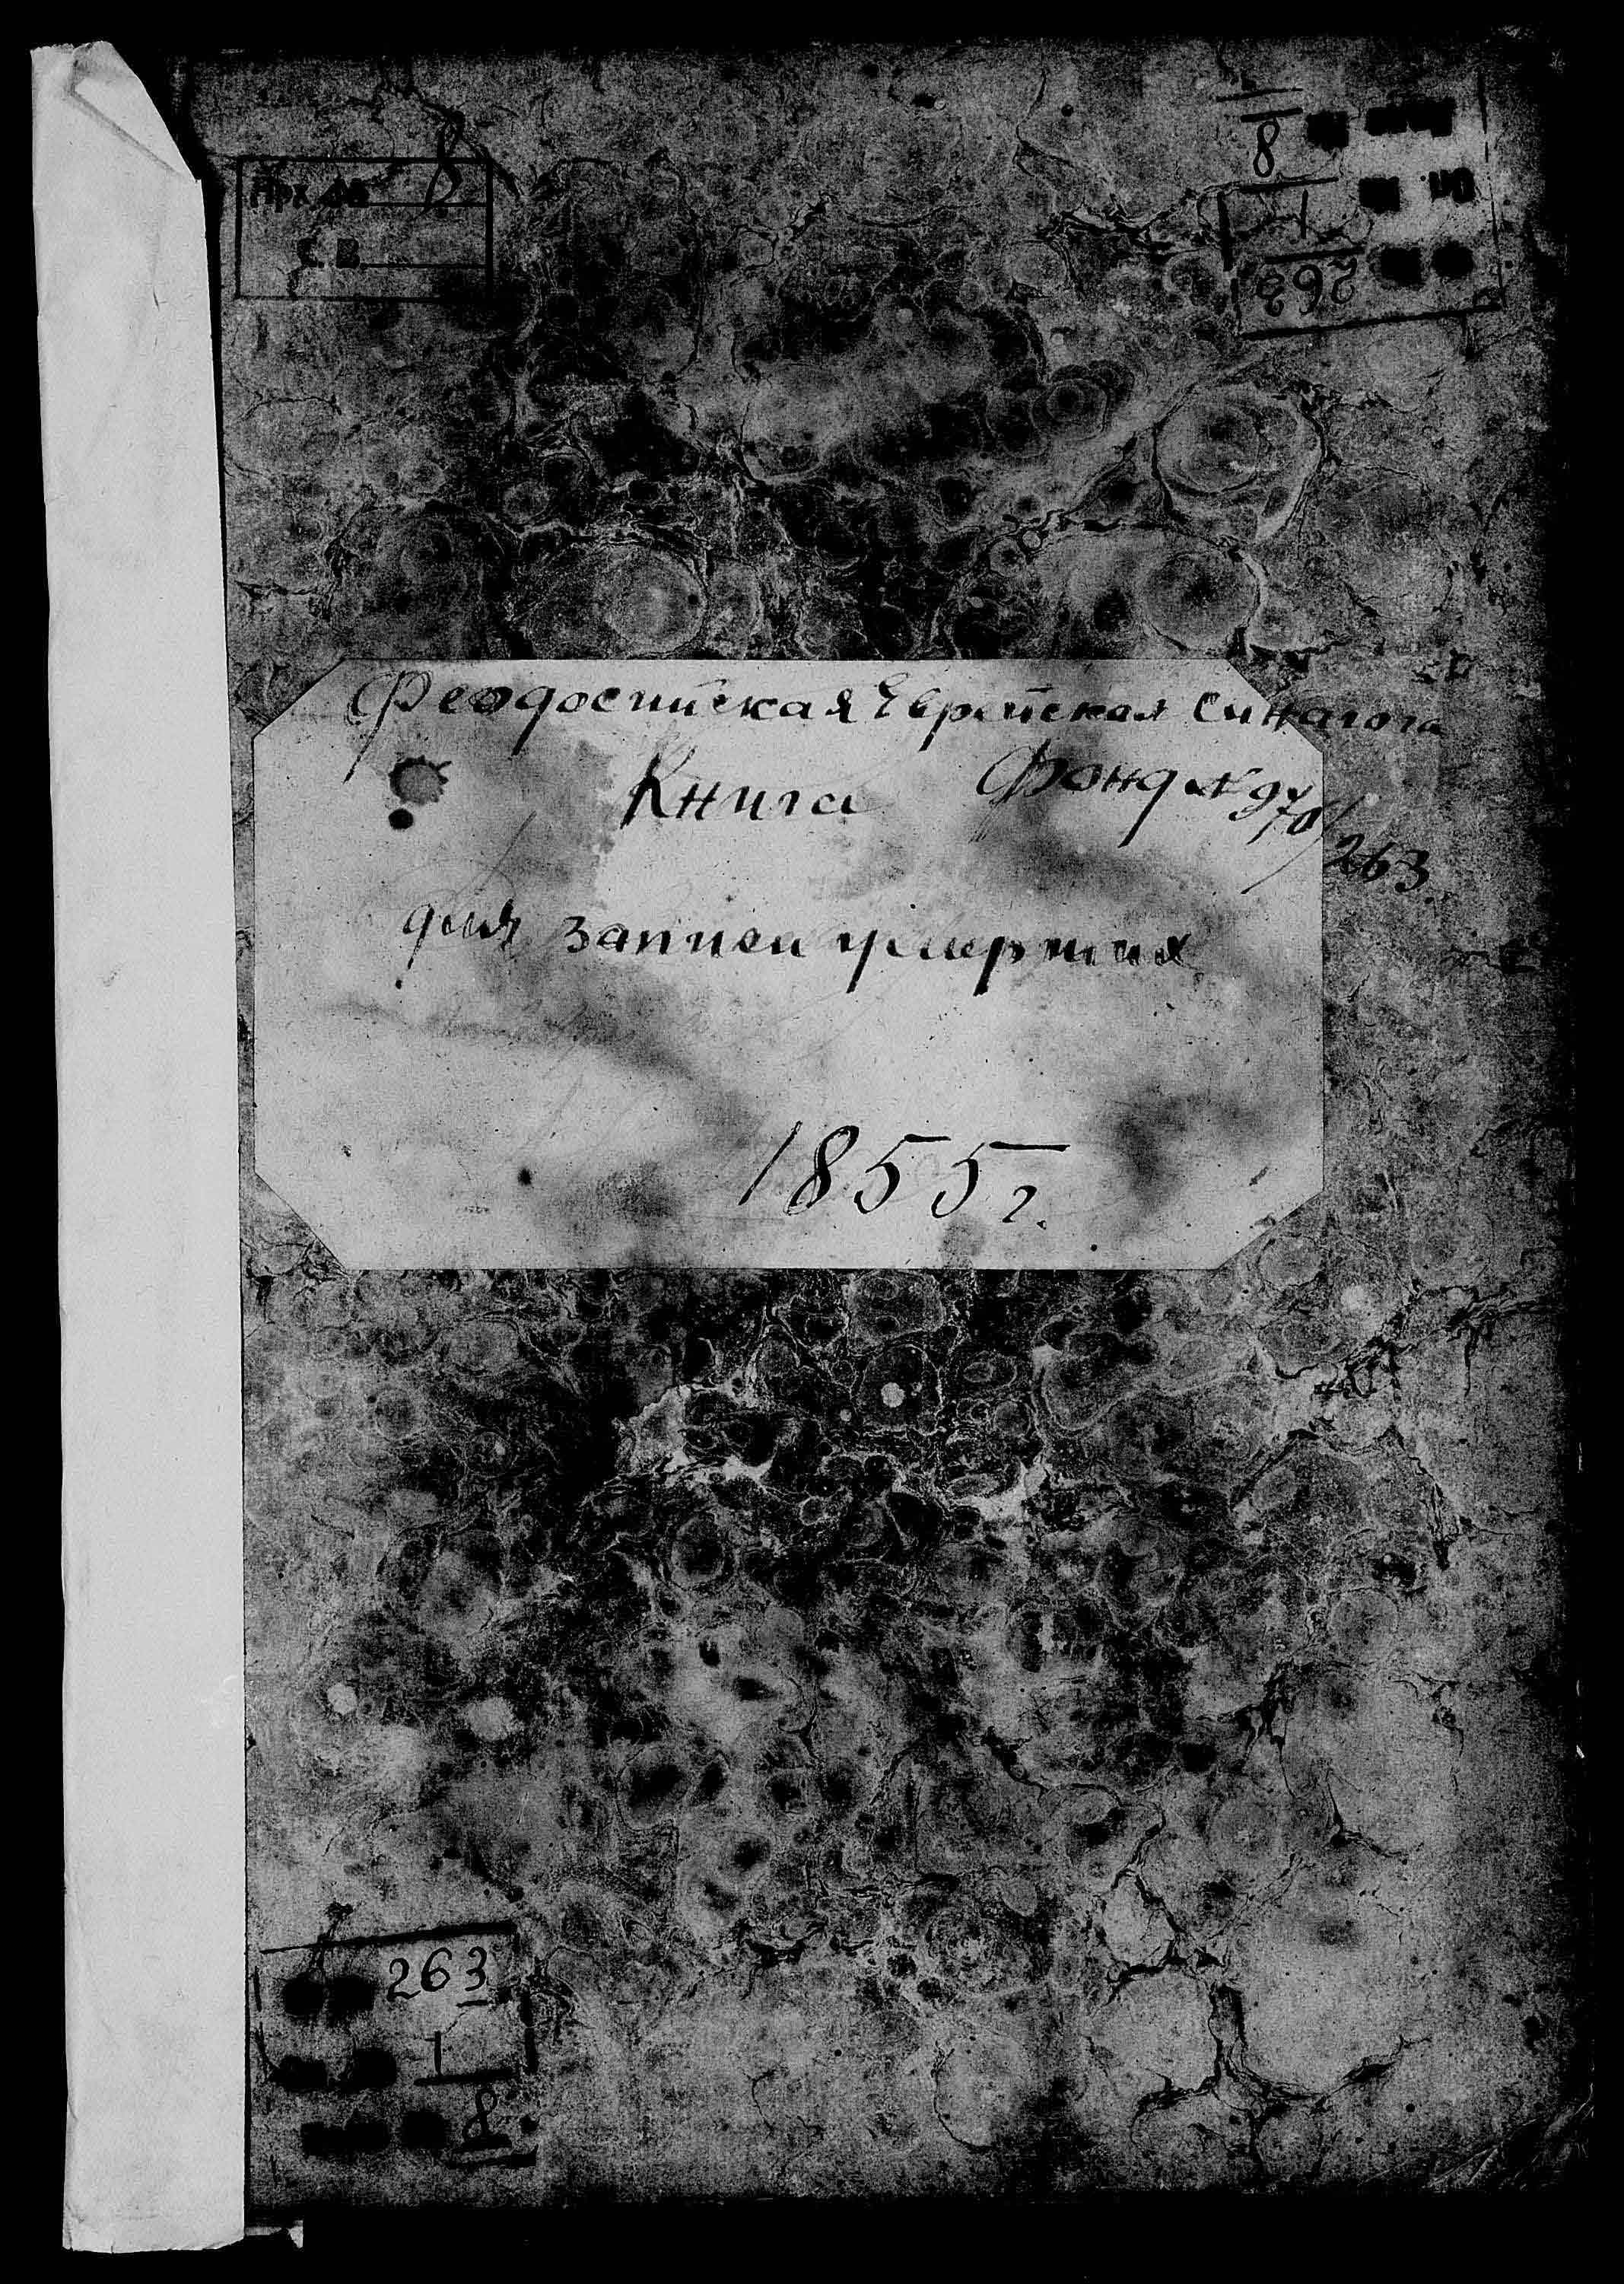 Арх. № 8
С. В.
8
Оп. 1
263
Феодосийская Еврейская Синагога
Книга Фонд №
/263
для записи умерших
1855 г.
263
1
8